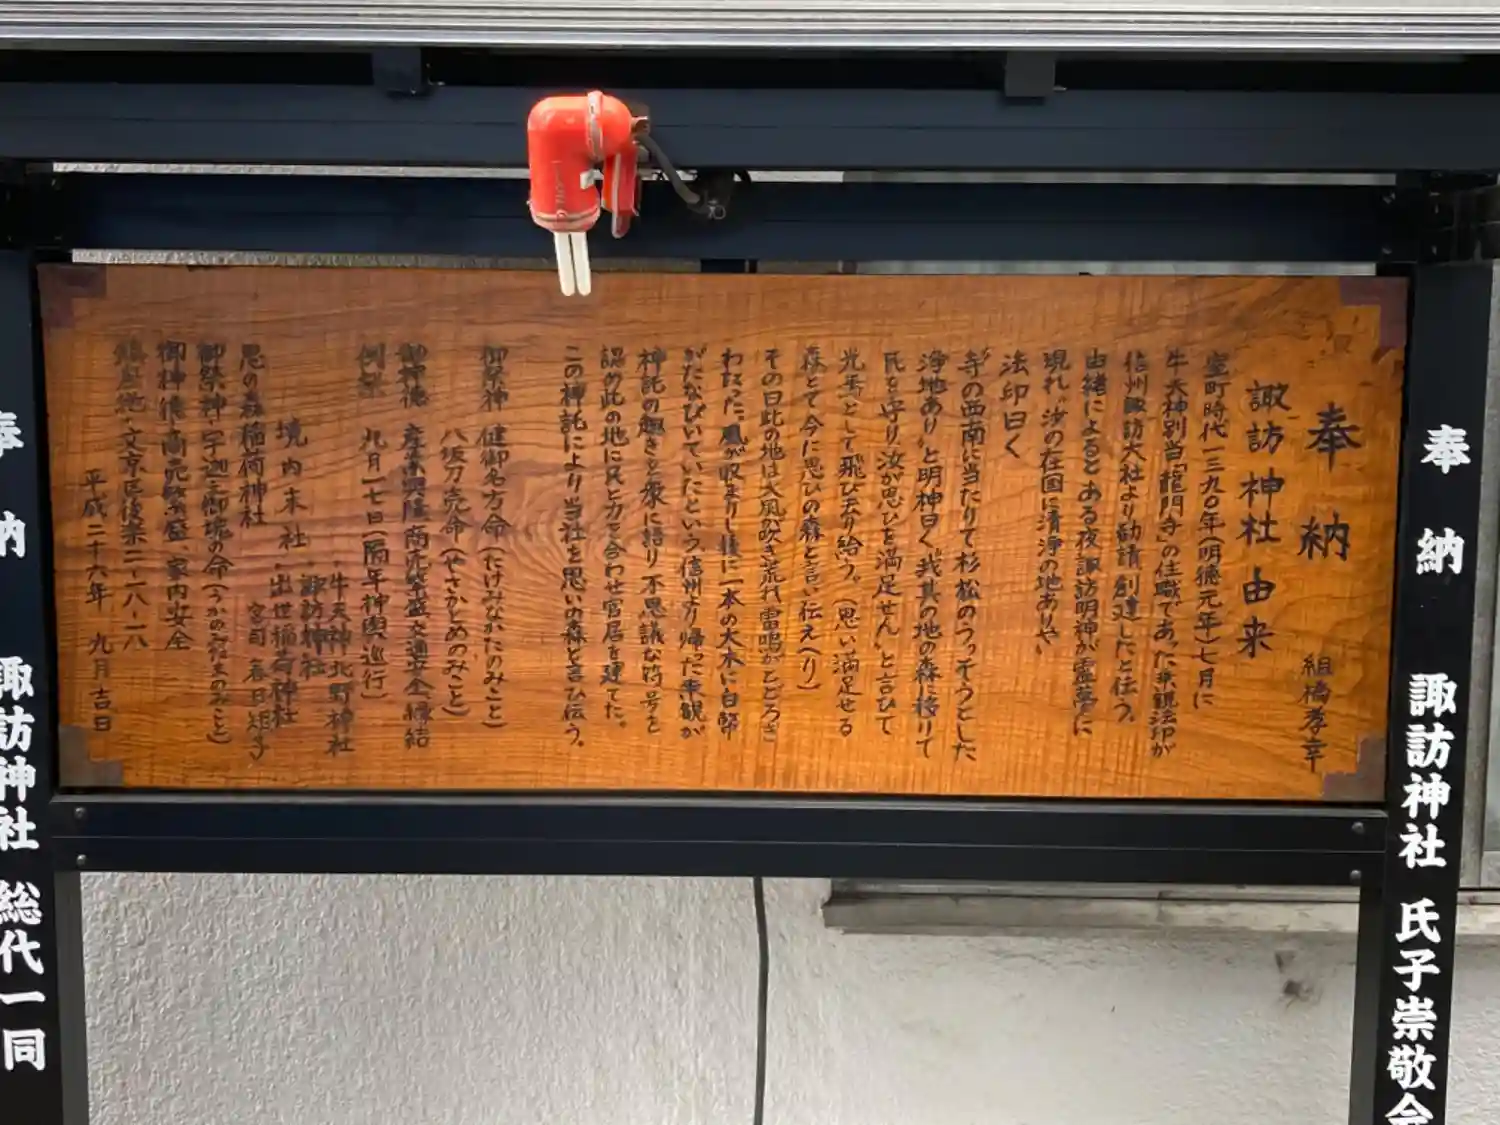 奉納
諏訪神社 氏子崇敬会
奉納
組橋孝幸
諏訪神社由来
室町時代一三九〇年(明徳元年)七月に
牛天神別当「龍門寺」の住職であった来観法印が
信州諏訪大社より勧請創建したと伝う。
由緒によるとある夜諏訪明神が霊夢に
現れ、汝の在国に清浄の地ありや、
法印曰く
寺の西南に当たりて杉松のうっそうとした
浄地あり」と明神曰く「我其の地の森に移りて
氏を守り汝が思ひを満足せん」と言ひて
光焉として飛び去り給う。(思い満足せる
森とて今に思ひの森と言い伝えへり)
その日此の地は大風が吹き荒れ雷鳴がとどろき
わたった。風が収まりし後に一本の大木に白幣
がたなびいていたという。信州より帰った来観が
神託の趣きを衆に語り不思議な符号を
認め此の地に民と力を合わせ宮居を建てた。
この神託により当社を思いの森と言ひ伝う。
御祭神 健御名方命(たけみなかたのみこと)
八坂刀売命(やさかとめのみこと)
御神徳 産業興隆 商売繁盛 交通安全 縁結
例祭 九月二七日(隔年神輿巡行)
・牛天神北野神社
境内末社・諏訪神社
・出世稲荷神社
宮司 春日矩子
思の森稲荷神社
御祭神・宇迦之御魂の命(うかのみたまのみこと)
御神徳・商売繁盛、家内安全
鎮座地・文京区後楽二-一八-一八
平成二十六年 九月吉日
奉納
諏訪神社 総代一同